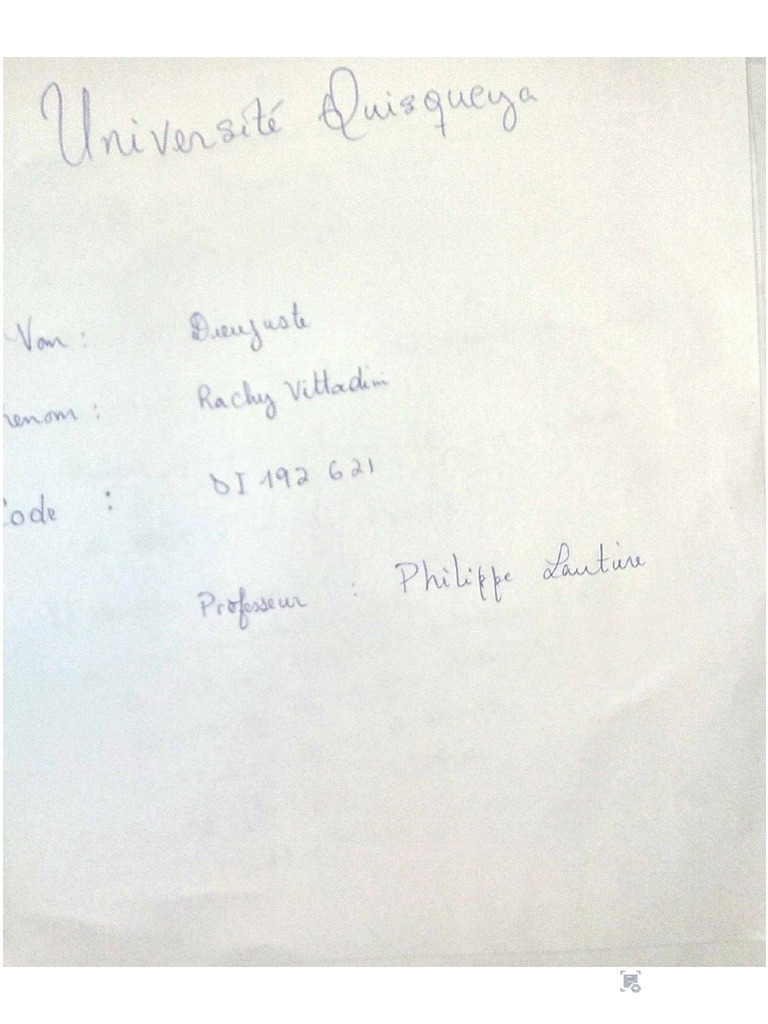 Université Quisqueya
Nom : Dieujuste
renom : Rachy Vittadini
Code : DI 192 621
Professeur : Philippe Lautüre